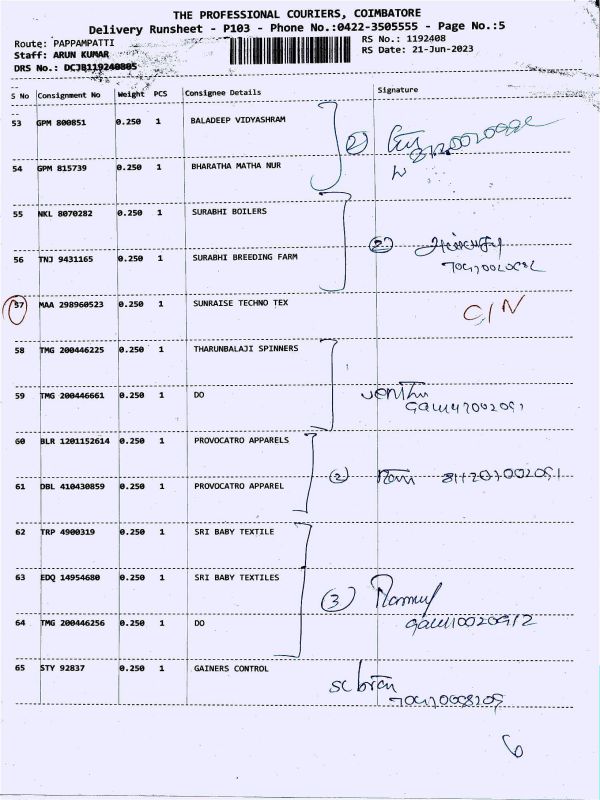 THE PROFESSIONAL COURIERS, COIMBATORE
Delivery Runsheet - P103 - Phone No.:0422-3505555 - Page No.:5
Route: PAPPAMPATTI
RS No.: 1192408
Staff: ARUN KUMAR
RS Date: 21-Jun-2023
DRS No.: DCJB119240805
S No Consignment No Weight PCS Consignee Details Signature
53 GPM 800851 0.250 1 BALADEEP VIDYASHRAM
2
54 GPM 815739 0.250 1 BHARATHA MATHA NUR
55 NKL 8070282 0.250 1 SURABHI BOILERS
2
56 TNJ 9431165 0.250 1 SURABHI BREEDING FARM
57 MAA 298960523 0.250 1 SUNRAISE TECHNO TEX C/N
58 TMG 200446225 0.250 1 THARUNBALAJI SPINNERS
59 TMG 200446661 0.250 1 DO
60 BLR 1201152614 0.250 1 PROVOCATRO APPARELS
2
61 DBL 410430859 0.250 1 PROVOCATRO APPAREL
62 TRP 4900319 0.250 1 SRI BABY TEXTILE
63 EDQ 14954680 0.250 1 SRI BABY TEXTILES
3
64 TMG 200446256 0.250 1 DO
65 STY 92837 0.250 1 GAINERS CONTROL
6